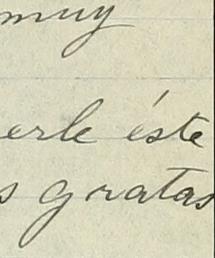 muy
erle éste
s gratas